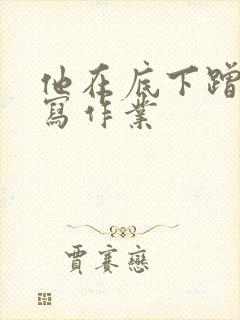 他在底下蹭
寫作業
賈賽戀